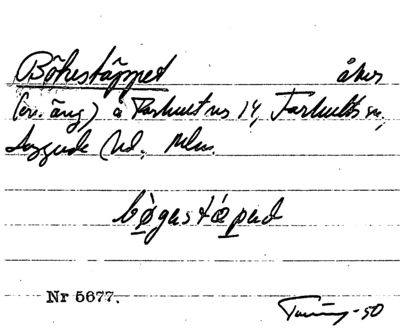 Bökestäppet åker
(öv. äng) å Farhult nr 14, Farhults sn,
Luggude hd, Mlm.
bøgastæpəd
Nr 5677.
-50